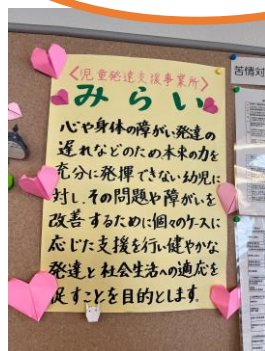 〈児童発達支援事業所〉
みらい
心や身体の障がい発達の
遅れなどのため本来の力を
充分に発揮できない幼児に
対し、その問題や障がいを
改善するために個々のケースに
応じた支援を行い健やかな
発達と社会生活への適応を
促すことを目的とします。
苦情対